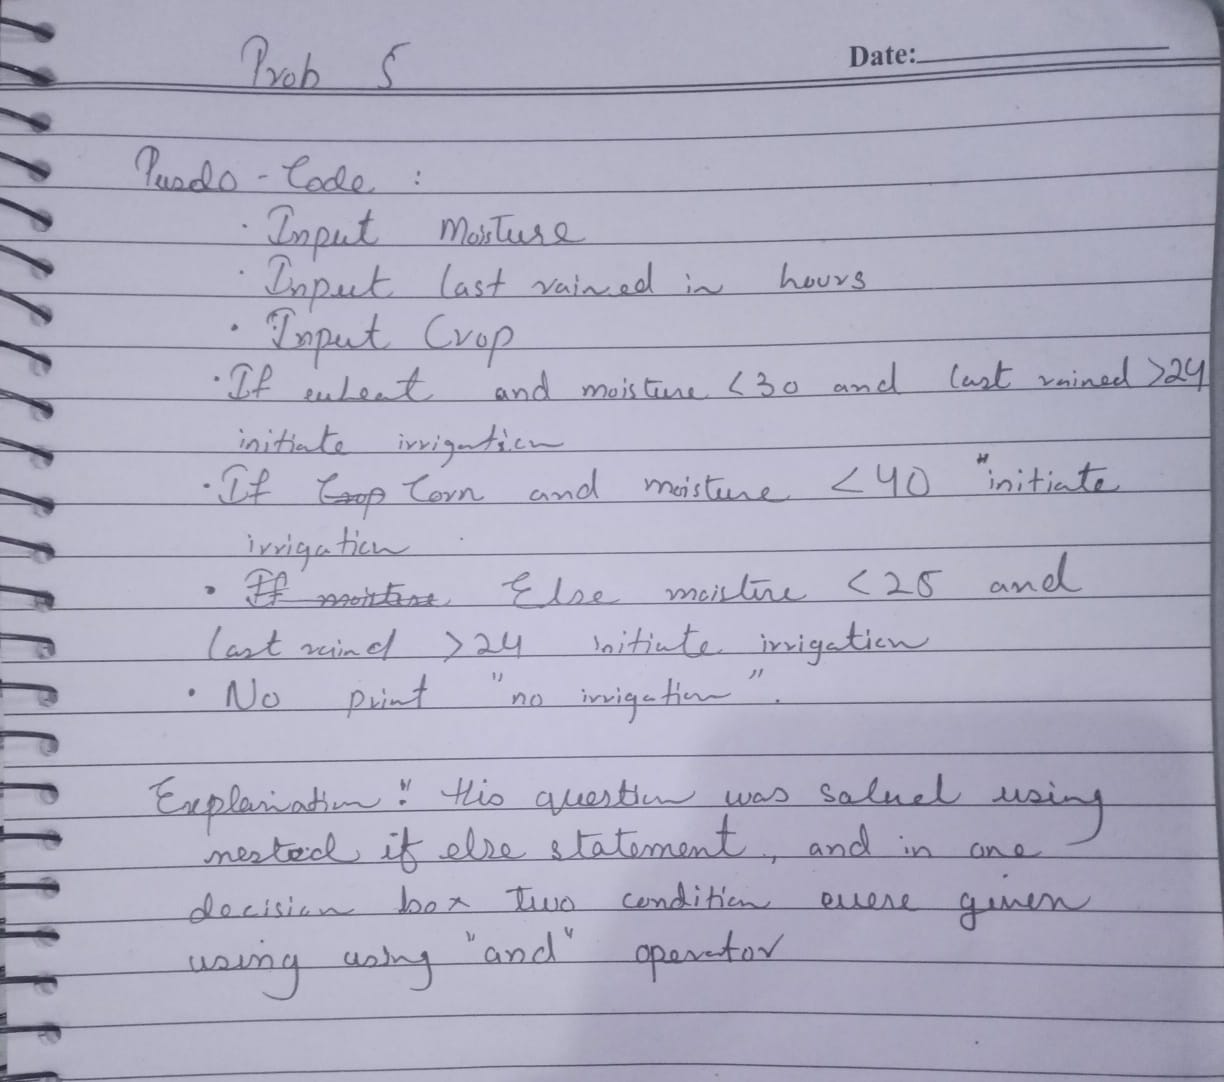 Prob 5
Date:
Pusdo-Code :
· Input Moisture
· Input last rained in hours
· Input Crop
· If wheat and moisture <30 and last rained >24
initiate irrigation
· If Crop Corn and moisture <40 "initiate
irrigation
· If moisture Else moisture <25 and
last raind >24 initiate irrigation
· No print "no irrigation".
Explanation: this question was solved using
nested if else statement, and in one
decision box two condition were given
using using "and" operator